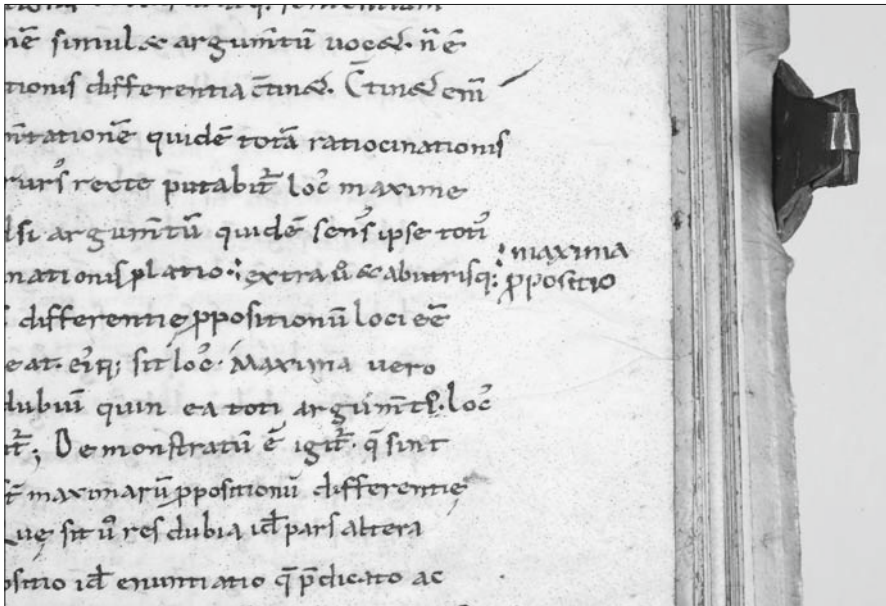 nē simul & argum̄tū uocet. n̄ ē
tionis differentia c̄tinet. C̄tinet eni̅
m̄tationē quidē totā ratiocinationis
rurs᾿ recte putabit᷑ loc᾿ maxime
si argum̄tū quidē sens᾿ ipse toti᾿
nationis ꝓlatio extra ů & ab utrisq: maxima
ꝓpositio
differentie ꝓpositionū loci eē
eat. sit loc᾿. Maxima uero
dubiū quin ea toti argum̄ti. loc᾿
Demonstratū ē igit᷑. q̄ sint
maximarū ꝓpositionū differentię
Quę sit ů res dubia id pars altera
ositio id enuntiatio q̄ p̄dicato ac